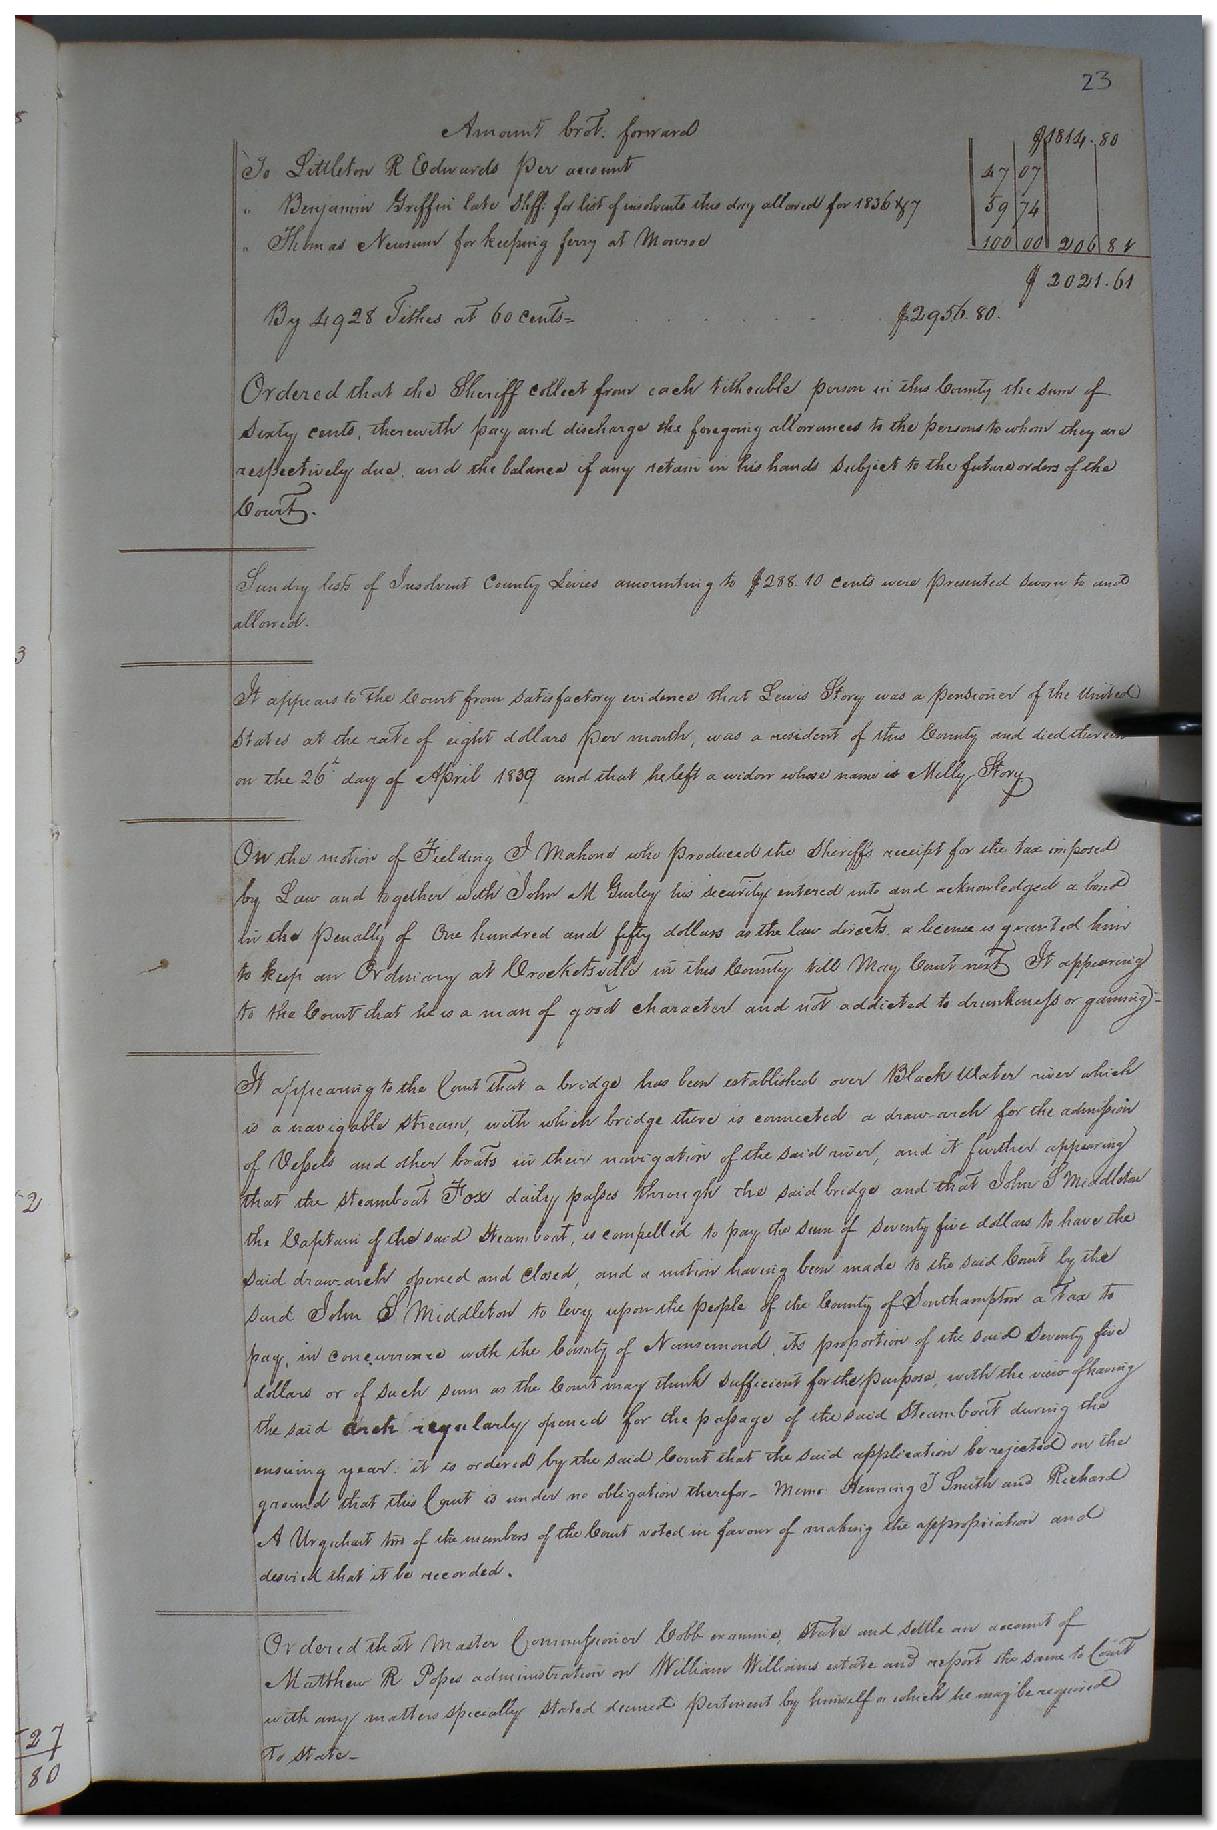 23
Amount brot. forward $1814.80
To Littleton R Edwards per account 47 07
" Benjamin Griffin late Shff. for list of insolvents this day allowed for 1836 & 7 59 74
" Thomas Newsum for keeping ferry at Monroe 100 00 206 81
$ 2021.61
By 4928 Tithes at 60 cents= $2956.80.
Ordered that the Sheriff collect from each titheable person in this County the sum of
sixty cents, therewith pay and discharge the foregoing allowances to the persons to whom they are
respectively due, and the balance if any retain in his hands subject to the future orders of the
Court.
Sundry lists of Insolvent County Levies amounting to $288.10 cents were presented sworn to and
allowed.
It appears to the Court from satisfactory evidence that Lewis Story was a pensioner of the United
States at the rate of eight dollars per month, was a resident of this County and died therein
on the 26t day of April 1839 and that he left a widow whose name is Milly Story
On the motion of Fielding J Mahone who produced the Sheriffs receipt for the tax imposed
by Law and together with John M Gurley his security entered into and acknowledged a bond
in the penalty of One hundred and fifty dollars as the law directs. a license is granted him
to keep an Ordinary at Crocketsville in this County till May Court next It appearing
to the Court that he is a man of good character and not addicted to drunkeness or gaming-
It appearing to the Court that a bridge has been established over Black Water river which
is a navigable stream, with which bridge there is connected a draw-arch for the admission
of Vessels and other boats in their navigation of the said river, and it further appearing
that the steamboat Fox daily passes through the said bridge and that John S Middleton
the Captain of the said Steamboat, is compelled to pay the sum of seventy five dollars to have the
said draw-arch opened and closed, and a motion having been made to the said Court by the
said John S Middleton to levy upon the people of the County of Southampton a Tax to
pay, in concurrence with the County of Nansemond, its proportion of the said seventy five
dollars or of such sum as the Court may think sufficient for the purpose, with the view of having
the said arch regularly opened for the passage of the said Steamboat during the
ensuing year: it is ordered by the said Court that the said application be rejected on the
ground that this Court is under no obligation therefor- Memo Henning T Smith and Richard
A Urquhart two of the members of the Court voted in favour of making the appropriation and
desired that it be recorded.
Ordered that Master Commissioner Cobb examine, state and settle an account of
Matthew R Popes administration on William Williams estate and report the same to Court
with any matters specially stated deemed pertinent by himself or which he may be required
To state-
2
3
27
80